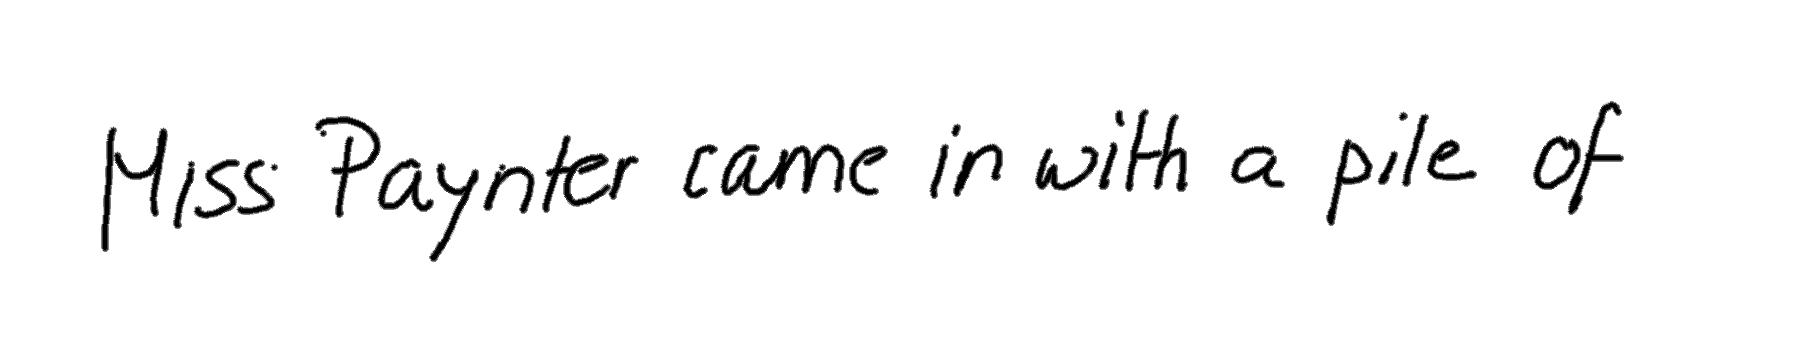 Miss Paynter came in with a pile of